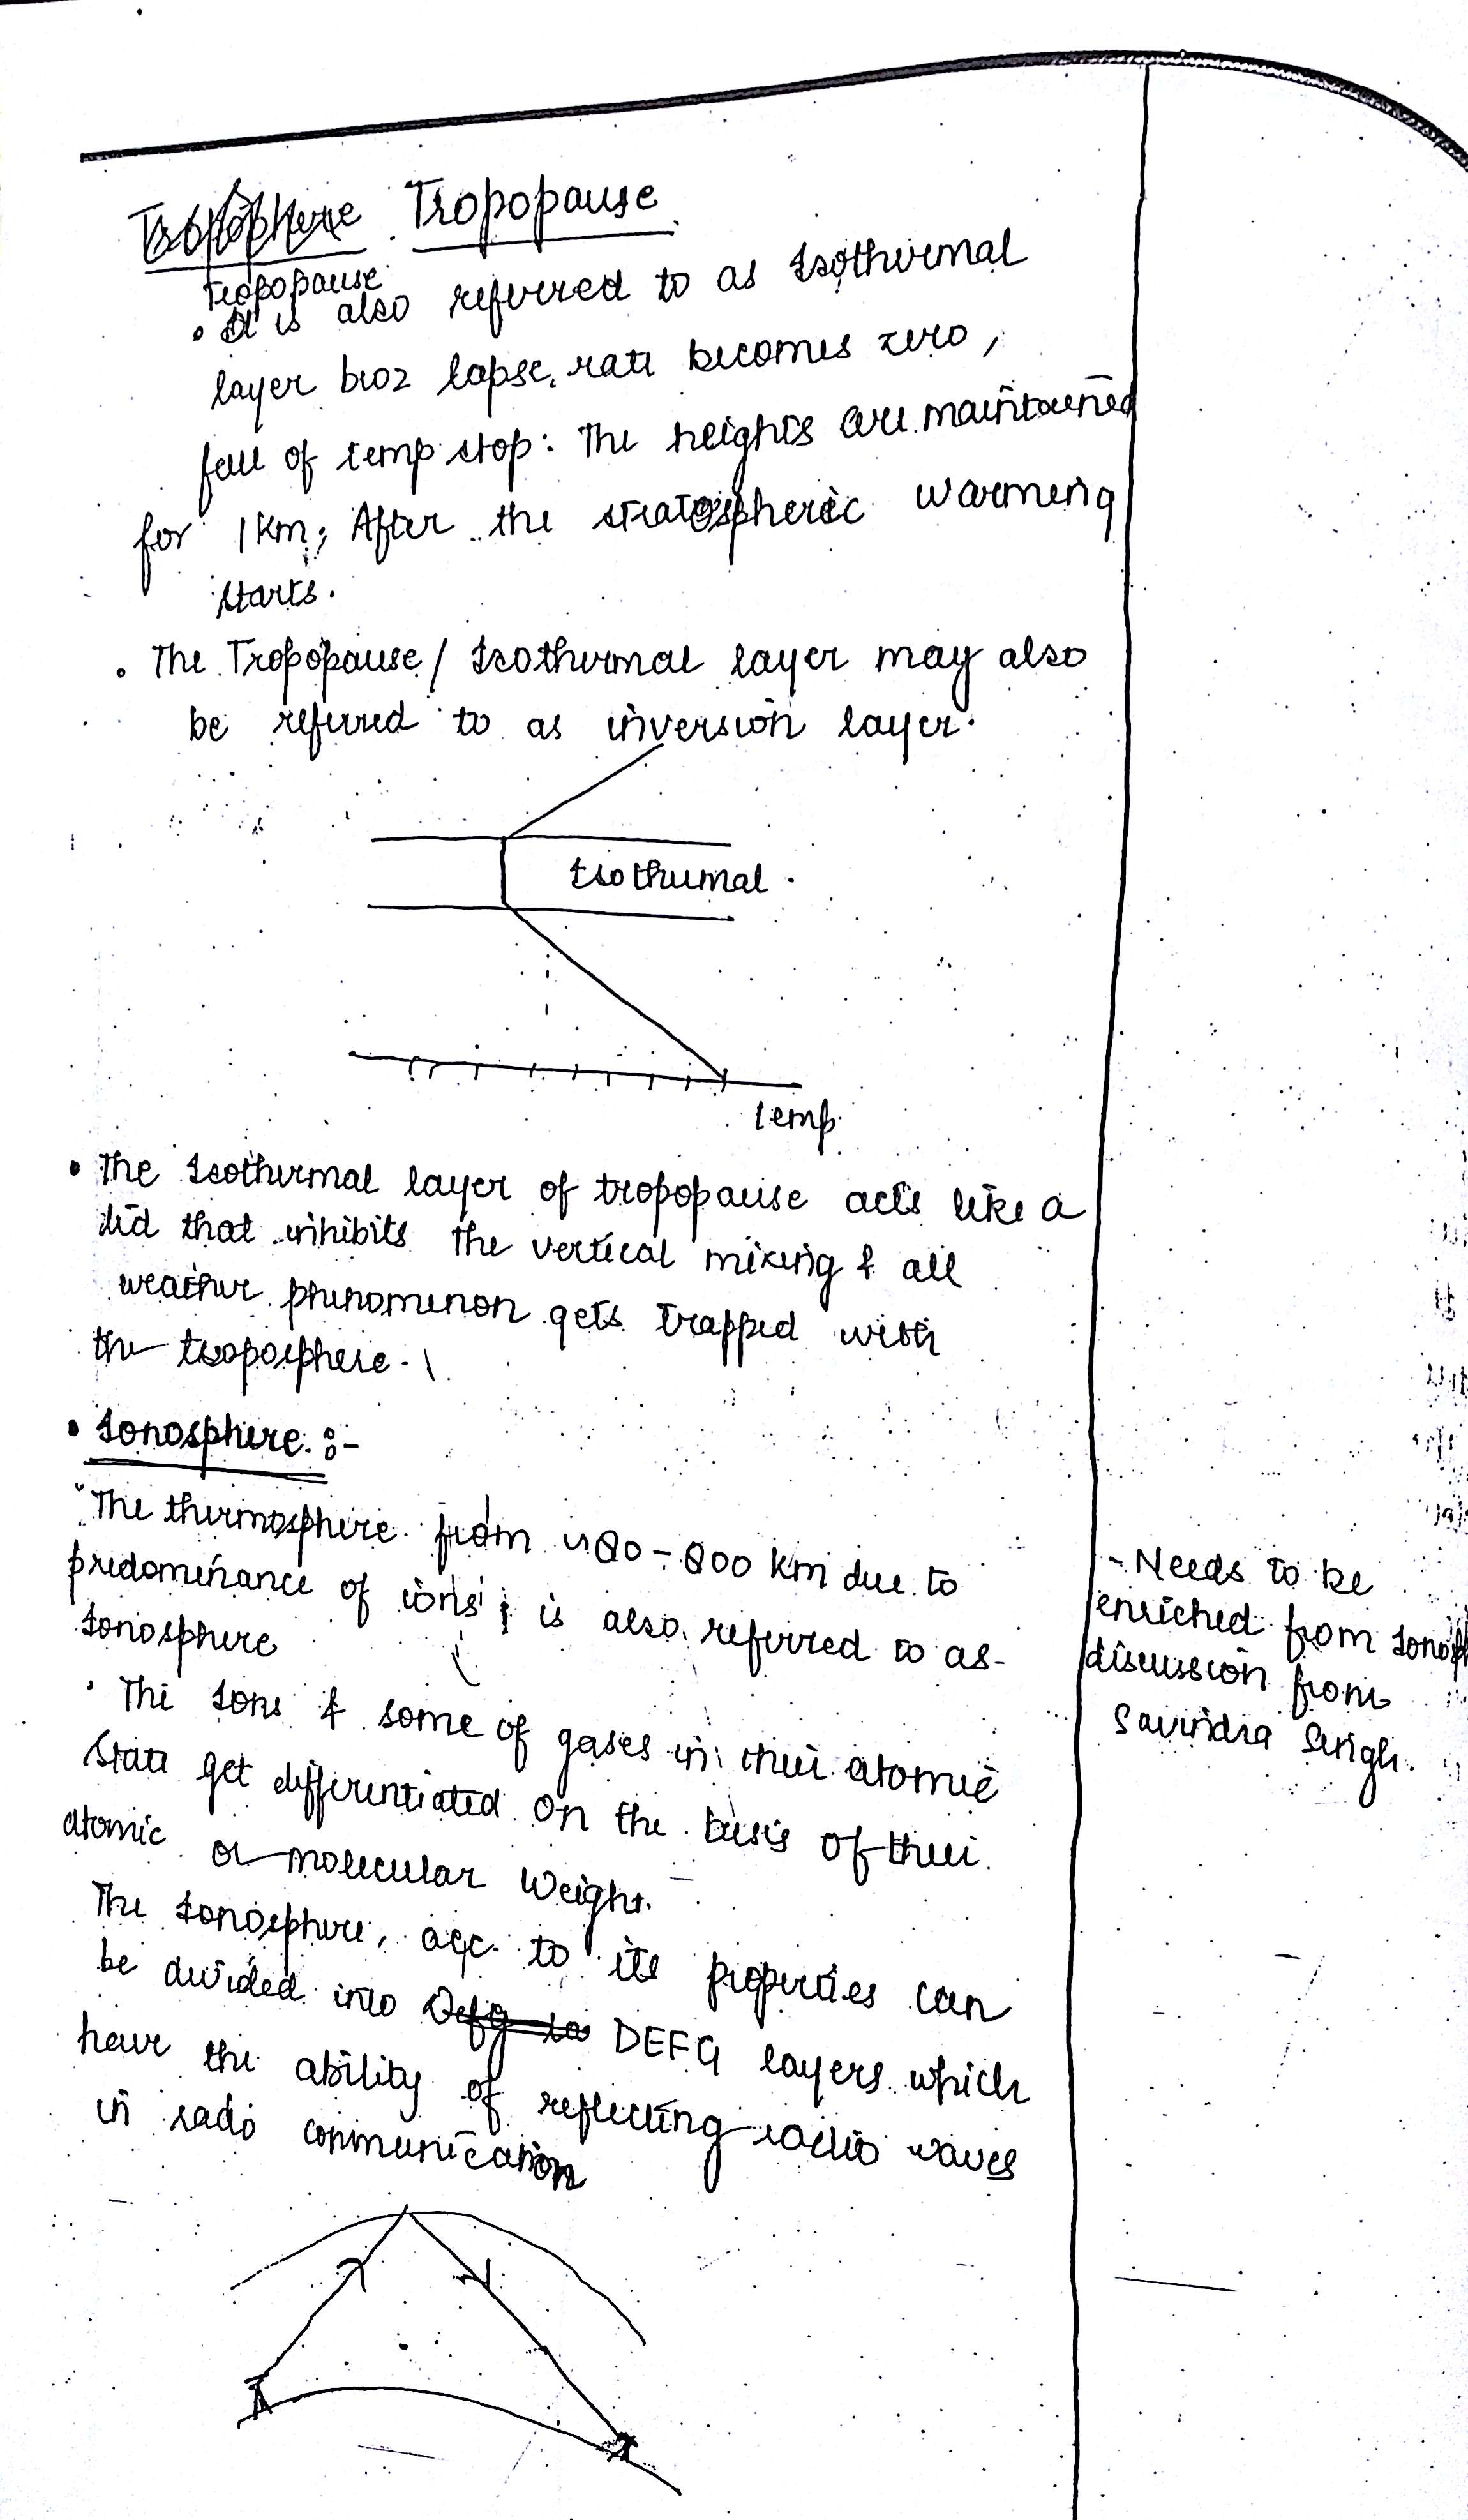 Troposphere Tropopause
Tropopause
• It is also referred to as Isothermal
layer bcoz lapse rate becomes zero,
fall of temp stop: The heights are maintained
for 1 Km; After the stratospheric warming
starts.
• The Tropopause / Isothermal layer may also
be referred to as inversion layer.
Isothermal
temp.
• The Isothermal layer of tropopause acts like a
lid that inhibits the vertical mixing & all
weather phenomenon gets trapped with
the troposphere.
• Ionosphere :-
• The thermosphere from ~80-800 km due to
predominance of ions; is also referred to as
Ionosphere
- Needs to be
enriched from
discussion from
Savindra Singh.
• The Ions & some of gases in their atomic
state get differentiated on the basis of their
atomic or molecular weight.
The Ionosphere, acc. to its properties can
be divided into Defg la DEFG layers which
have the ability of reflecting radio waves
in radio communication